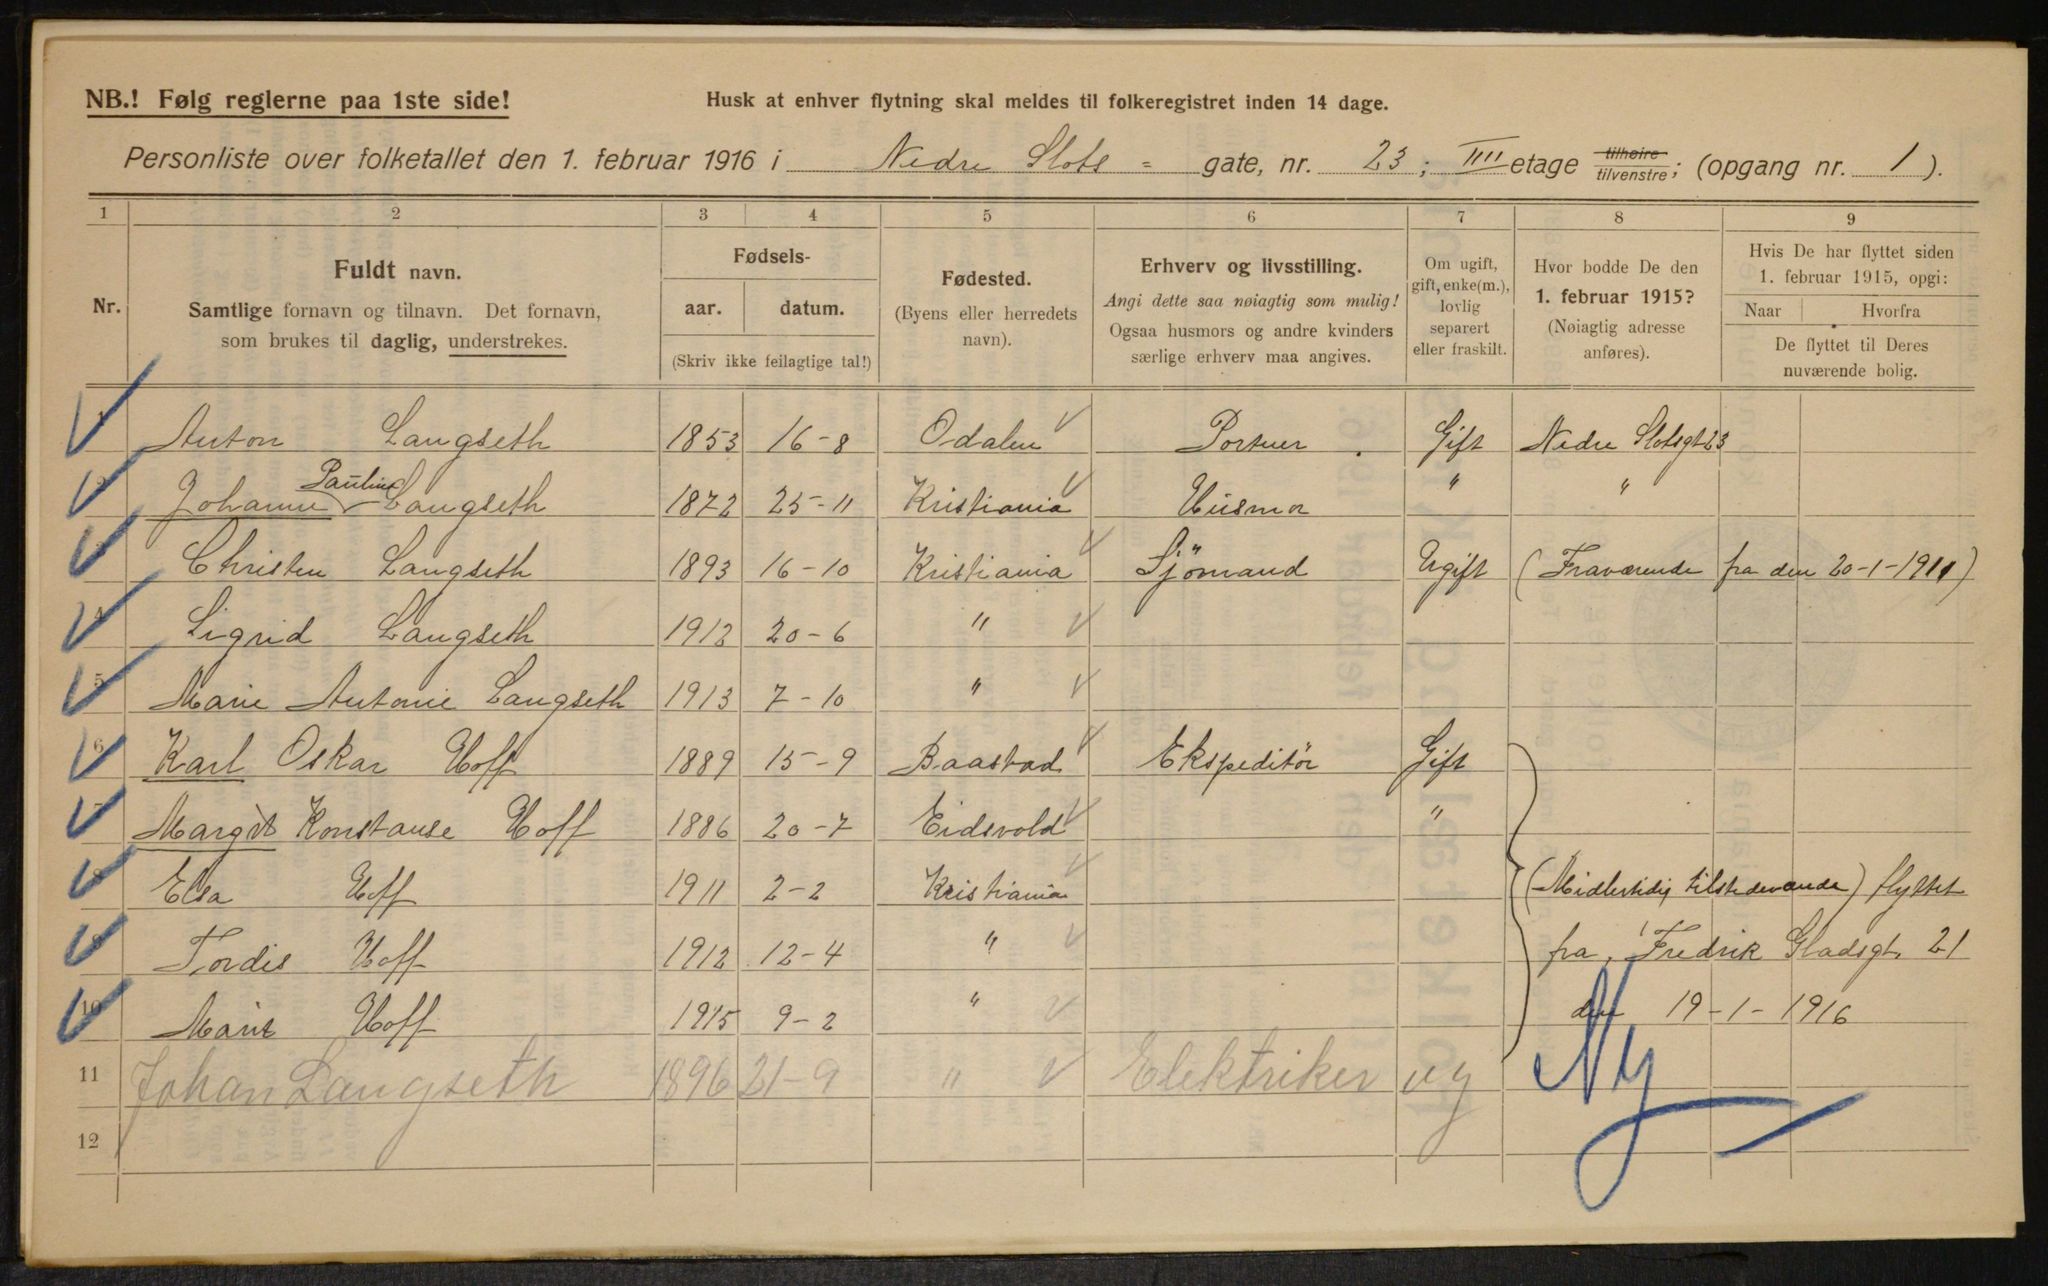 NB.! Følg reglerne paa 1ste side!
Husk at enhver flytning skal meldes til folkeregistret inden 14 dage.
Personliste over folketallet den 1. februar 1916 i Nedre Slots = gate, nr. 23; IIII etage tilhøire tilvenstre; (opgang nr. 1).
1 2 3 4 5 6 7 8 9
Nr.
Fuldt navn.
Samtlige fornavn og tilnavn. Det fornavn,
som brukes til daglig, understrekes.
Fødsels-
aar. datum.
(Skriv ikke feilagtige tal!)
Fødested.
(Byens eller herredets
navn).
Erhverv og livsstilling.
Angi dette saa nøiagtig som mulig!
Ogsaa husmors og andre kvinders
særlige erhverv maa angives.
Om ugift,
gift, enke(m.),
lovlig
separert
eller fraskilt.
Hvor bodde De den
1. februar 1915?
(Nøiagtig adresse
anføres).
Hvis De har flyttet siden
1. februar 1915, opgi:
Naar Hvorfra
De flyttet til Deres
nuværende bolig.
1 Anton Langseth 1853 16-8 Odalen Portner Gift Nedre Slotsgt 23
2 Johanne Pauline Langseth 1872 25-11 Kristiania Husmor " "
3 Christen Langseth 1893 16-10 Kristiania Sjömand Ugift (Fraværende fra den 20-1-1911)
4 Sigrid Langseth 1912 20-6 "
5 Marie Antonie Langseth 1913 7-10 "
6 Karl Oskar Hoff 1889 15-9 Baastad Ekspeditör Gift
7 Margit Konstanse Hoff 1886 20-7 Eidsvold "
8 Elsa Hoff 1911 2-2 Kristiania (Midlertidig tilstedevænde) flyttet
9 Tordis Hoff 1912 12-4 " fra Fredrik Gladsgt. 21
10 Marit Hoff 1915 9-2 " den 19-1-1916
11 Johan Langseth 1896 21-9 " Elektriker ug Ny
12